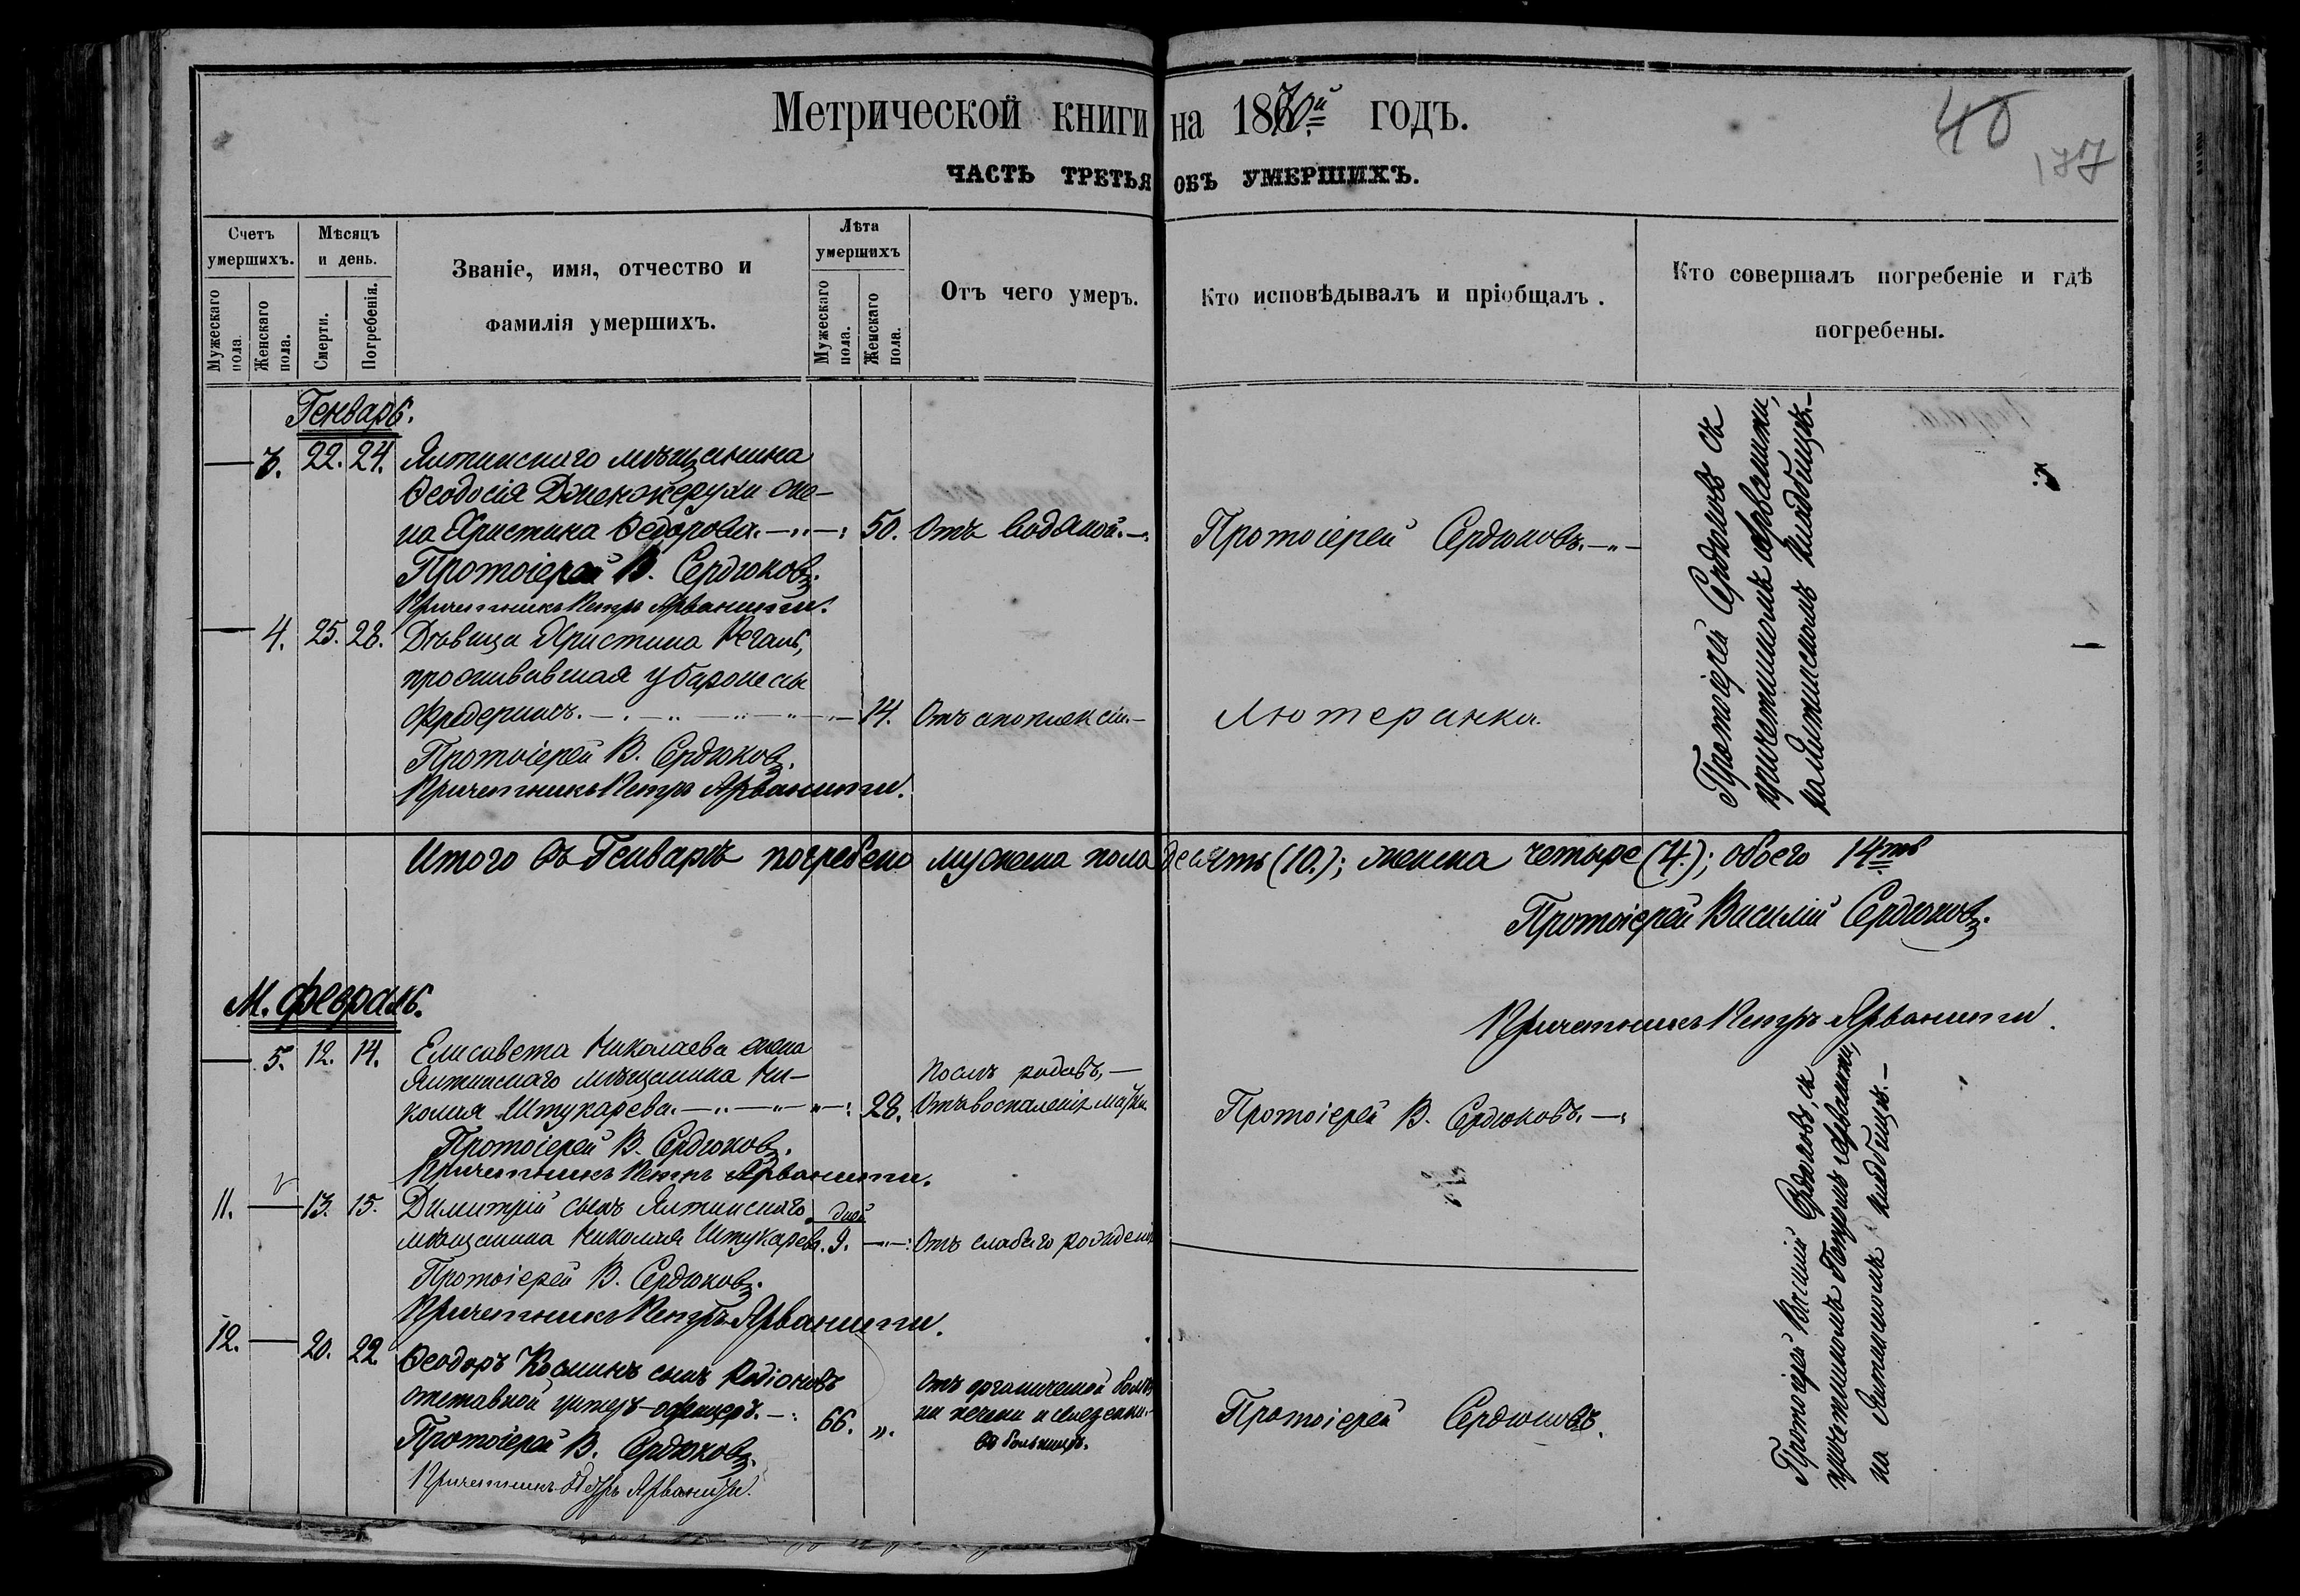 Метрической книги на 1870й годъ.
40
177
ЧАСТЬ ТРЕТЬЯ ОБЪ УМЕРШИХЪ.
Счетъ умершихъ.
Мужескаго пола.
Женскаго пола.
Мѣсяцъ и день.
Смерти.
Погребенія.
Званіе, имя, отчество и
фамилія умершихъ.
Лѣта умершихъ
Мужескаго пола.
Женскаго пола.
Отъ чего умеръ.
Кто исповѣдывалъ и пріобщалъ.
Кто совершалъ погребеніе и гдѣ
погребены.
Генварь.
— 3. 22. 24. Ялтинскаго мѣщанина
Ѳеодосія Дженжерухи же-
на Христина Ѳедорова. 50. Отъ водяной. Протоіерей Сердюковъ.
Протоіерей В. Сердюковъ.
Причетникъ Петръ Арванитти.
— 4. 25. 28. Дѣвица Христина
проживавшая у баронесы
Фредериксъ. 14. Отъ апоплексіи. Лютеранка.
Протоіерей В. Сердюковъ.
Причетникъ Петръ Арванитти.
Протоіерей Сердюковъ съ
причетникомъ Арванитти,
на Ялтинскомъ кладбищѣ.
Итого въ Генварѣ погребено мужеска пола десять (10.); женска четыре (4.); обоего 14ть
Протоіерей Василій Сердюковъ.
Причетникъ Петръ Арванитти.
М. февраль.
— 5. 12. 14. Елисавета Николаева жена
Ялтинскаго мѣщанина Ни-
колая Штукарева. 28. Послѣ родовъ, —
Отъ воспаленія матки
Протоіерей В. Сердюковъ.
Протоіерей В. Сердюковъ.
Причетникъ Петръ Арванитти.
11. — 13. 15. Димитрій сынъ Ялтинскаго дней
мѣщанина Николая Штукарева. 9. Отъ слабаго рожденія
Протоіерей В. Сердюковъ.
Причетникъ Петръ Арванитти.
12. — 20. 22. Ѳеодоръ Косминъ сынъ Родіоновъ
отставной унтеръ-офицеръ. 66. „. Отъ органической болѣз
ни печени и селезенки.
въ больницѣ.
Протоіерей Сердюковъ.
Протоіерей В. Сердюковъ.
Причетникъ Петръ Арванитти.
Протоіерей Василій Сердюковъ, съ
причетникомъ Петромъ Арванитти,
на Ялтинскомъ кладбищѣ.